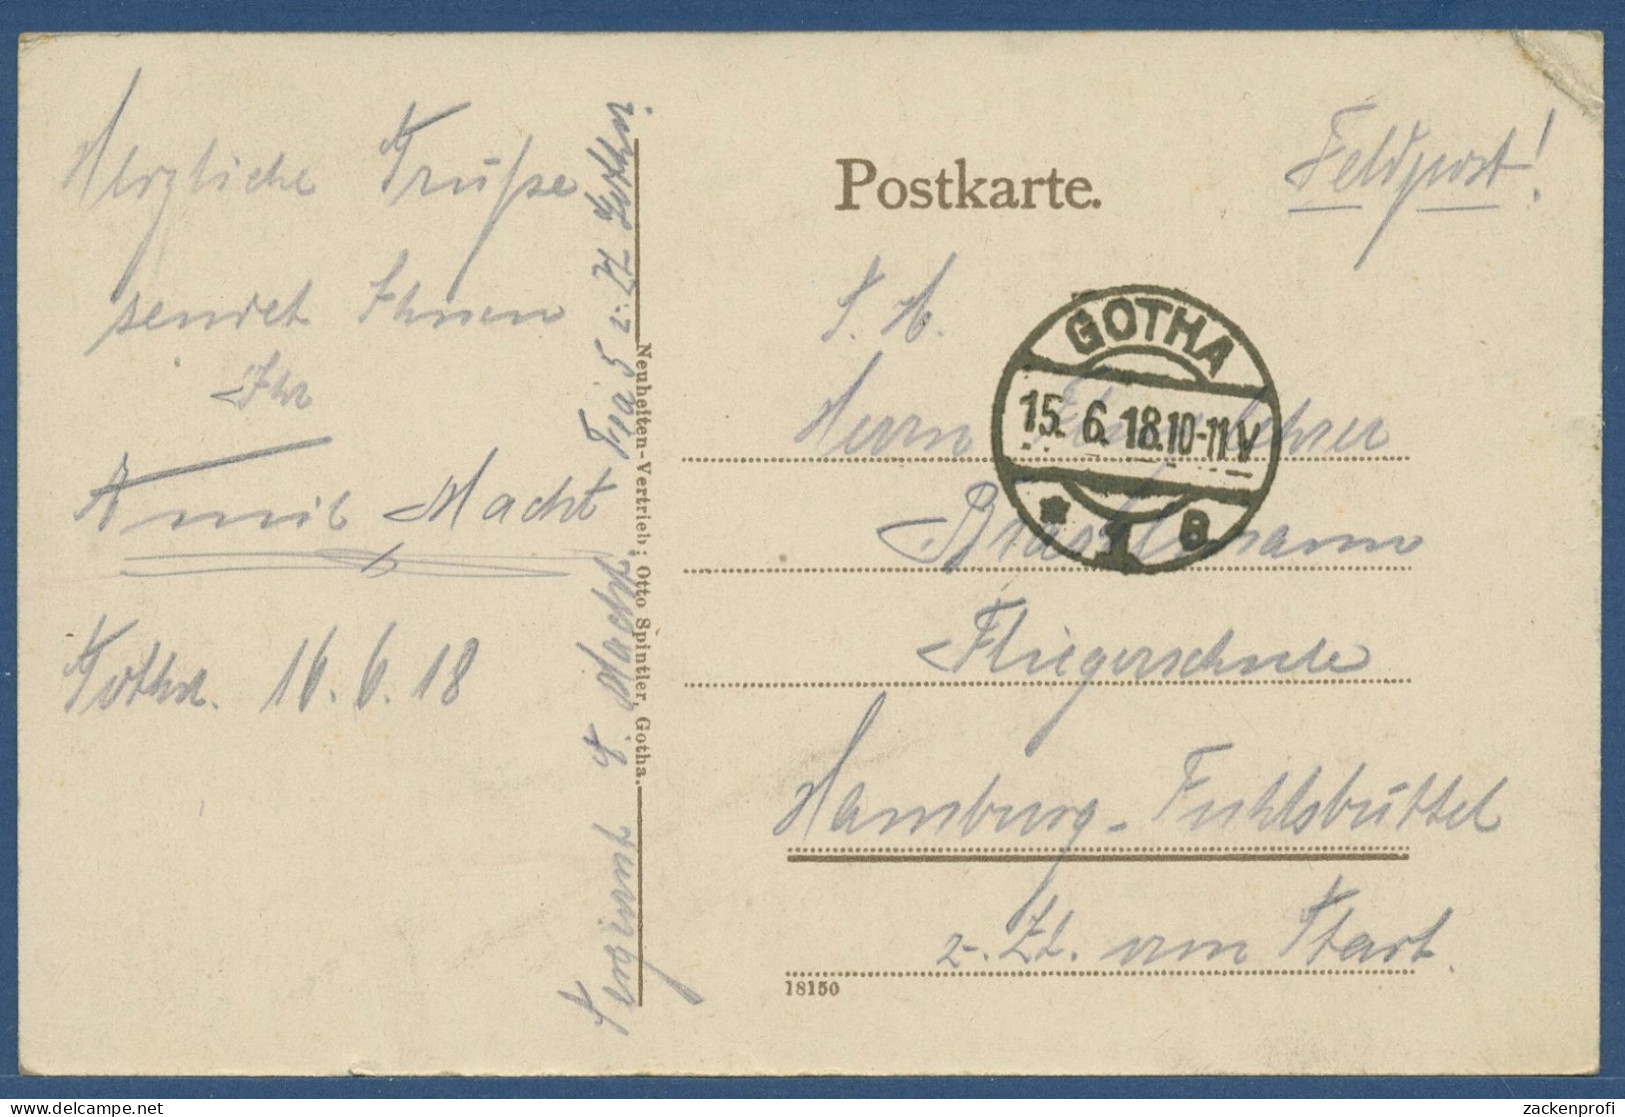 Herzliche Grüsse
sendet Ihnen
Ihr
Macht
Gotha. 16.6.18
8. Macht
Gotha
Neuheiten-Vertrieb: Otto Spintler, Gotha.
Postkarte.
Feldpost!
S. H.
Herrn
GOTHA
15. 6. 18. 10-11 V
* 1 B
Fliegerschule
Hamburg-Fuhlsbüttel
z. Zt. am Start.
18150
delcampe.net
zackenprofi